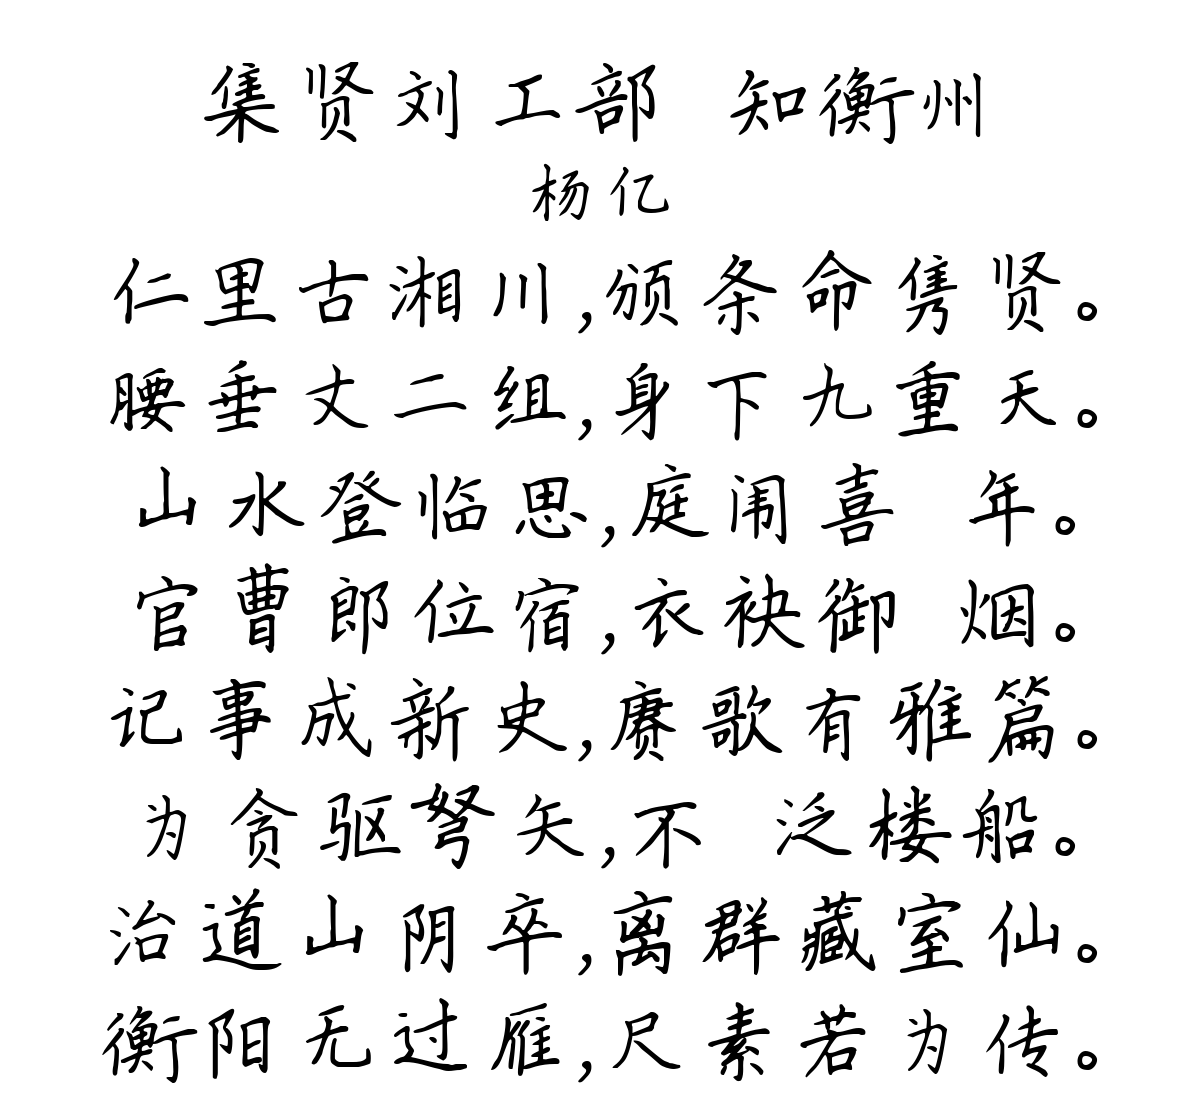 集贤刘工部 知衡州
杨亿
仁里古湘川,颁条命隽贤。
腰垂丈二组,身下九重天。
山水登临思,庭闹喜 年。
官曹郎位宿,衣袂御 烟。
记事成新史,赓歌有雅篇。
为贪驱弩矢,不 泛楼船。
治道山阴卒,离群藏室仙。
衡阳无过雁,尺素若为传。